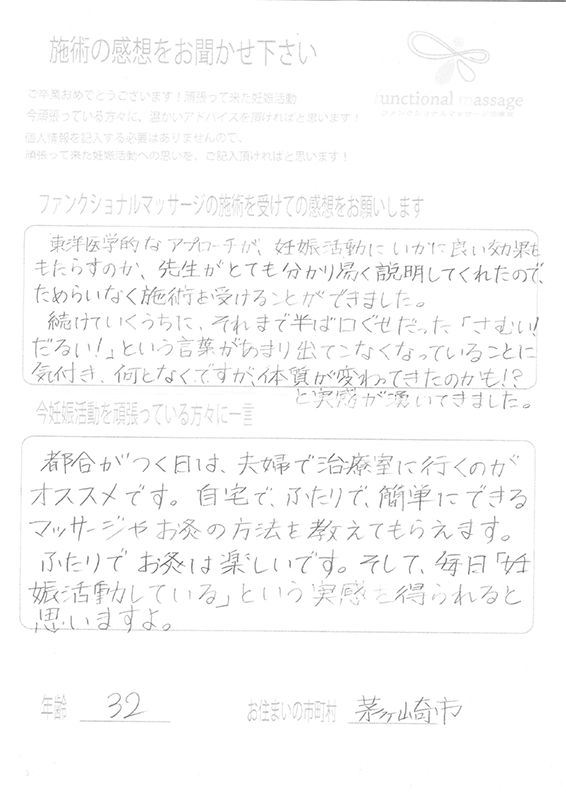 施術の感想をお聞かせ下さい
functional massage
ファンクショナルマッサージ治療室
ご卒業おめでとうございます！頑張って来た妊娠活動
今頑張っている方々に、温かいアドバイスを頂ければと思います！
個人情報を記入する必要はありませんので、
頑張って来た妊娠活動への思いを、ご記入頂ければと思います！
ファンクショナルマッサージの施術を受けての感想をお願いします
東洋医学的なアプローチが、妊娠活動にいかに良い効果を
もたらすのか、先生がとても分かり易く説明してくれたので、
ためらいなく施術を受けることができました。
続けていくうちに、それまで半ば口ぐせだった「さむい！
だるい！」という言葉があまり出てこなくなっていることに
気付き、何となくですが、体質が変わってきたのかも!?
と実感が湧いてきました。
今妊娠活動を頑張っている方々に一言
都合がつく日は、夫婦で治療室に行くのが
オススメです。自宅で、ふたりで、簡単にできる
マッサージやお灸の方法を教えてもらえます。
ふたりでお灸は楽しいです。そして、毎日「妊
娠活動している」という実感を得られると
思いますよ。
年齢 32 お住まいの市町村 茅ヶ崎市